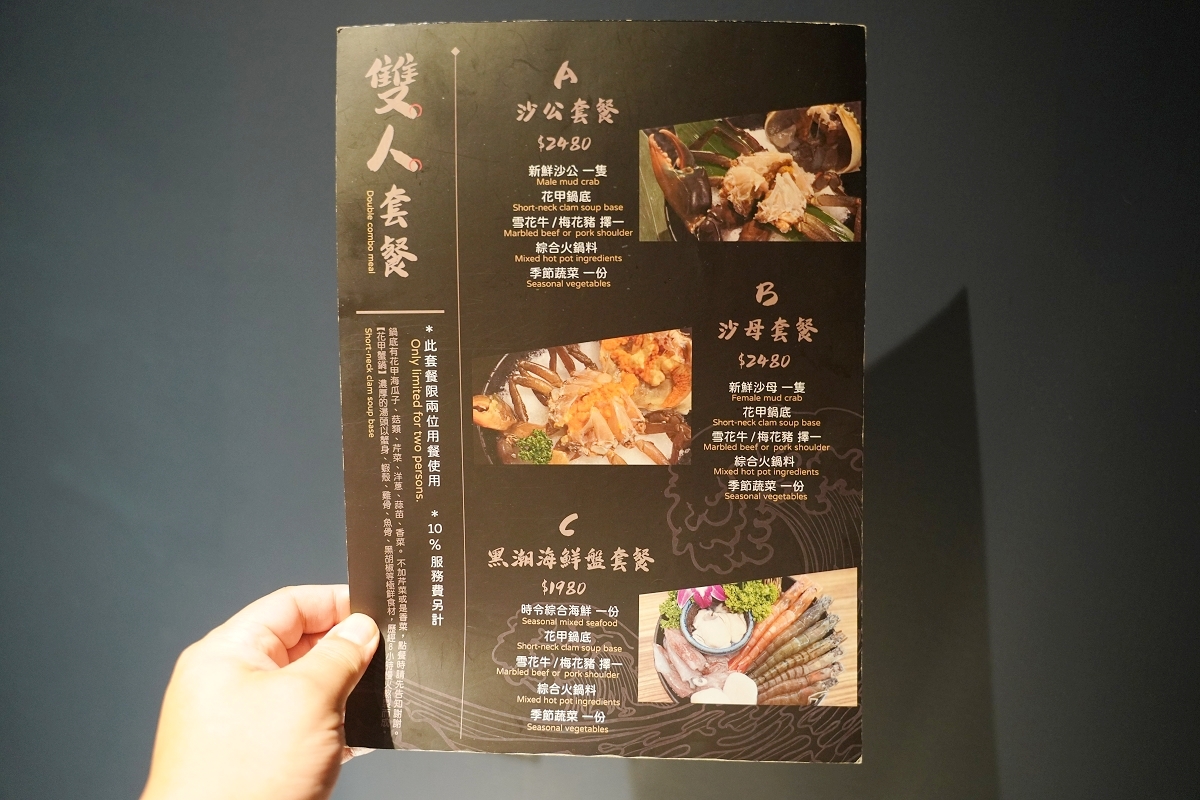 雙人套餐
Double combo meal
*此套餐限兩位用餐使用 *10%服務費另計
Only limited for two persons.
鍋底有花甲海瓜子、菇類、芹菜、洋蔥、蒜苗、香菜。不加芹菜或是香菜，點餐時請先告知謝謝。
【花甲蟹鍋】濃厚的湯頭以蟹身、蝦殼、雞骨、魚骨、黑胡椒等極鮮食材，歷經8小時
Short-neck clam soup base
A
沙公套餐
$2480
新鮮沙公 一隻
Male mud crab
花甲鍋底
Short-neck clam soup base
雪花牛/梅花豬 擇一
Marbled beef or pork shoulder
綜合火鍋料
Mixed hot pot ingredients
季節蔬菜 一份
Seasonal vegetables
B
沙母套餐
$2480
新鮮沙母 一隻
Female mud crab
花甲鍋底
Short-neck clam soup base
雪花牛/梅花豬 擇一
Marbled beef or pork shoulder
綜合火鍋料
Mixed hot pot ingredients
季節蔬菜 一份
Seasonal vegetables
C
黑潮海鮮盤套餐
$1980
時令綜合海鮮 一份
Seasonal mixed seafood
花甲鍋底
Short-neck clam soup base
雪花牛/梅花豬 擇一
Marbled beef or pork shoulder
綜合火鍋料
Mixed hot pot ingredients
季節蔬菜 一份
Seasonal vegetables